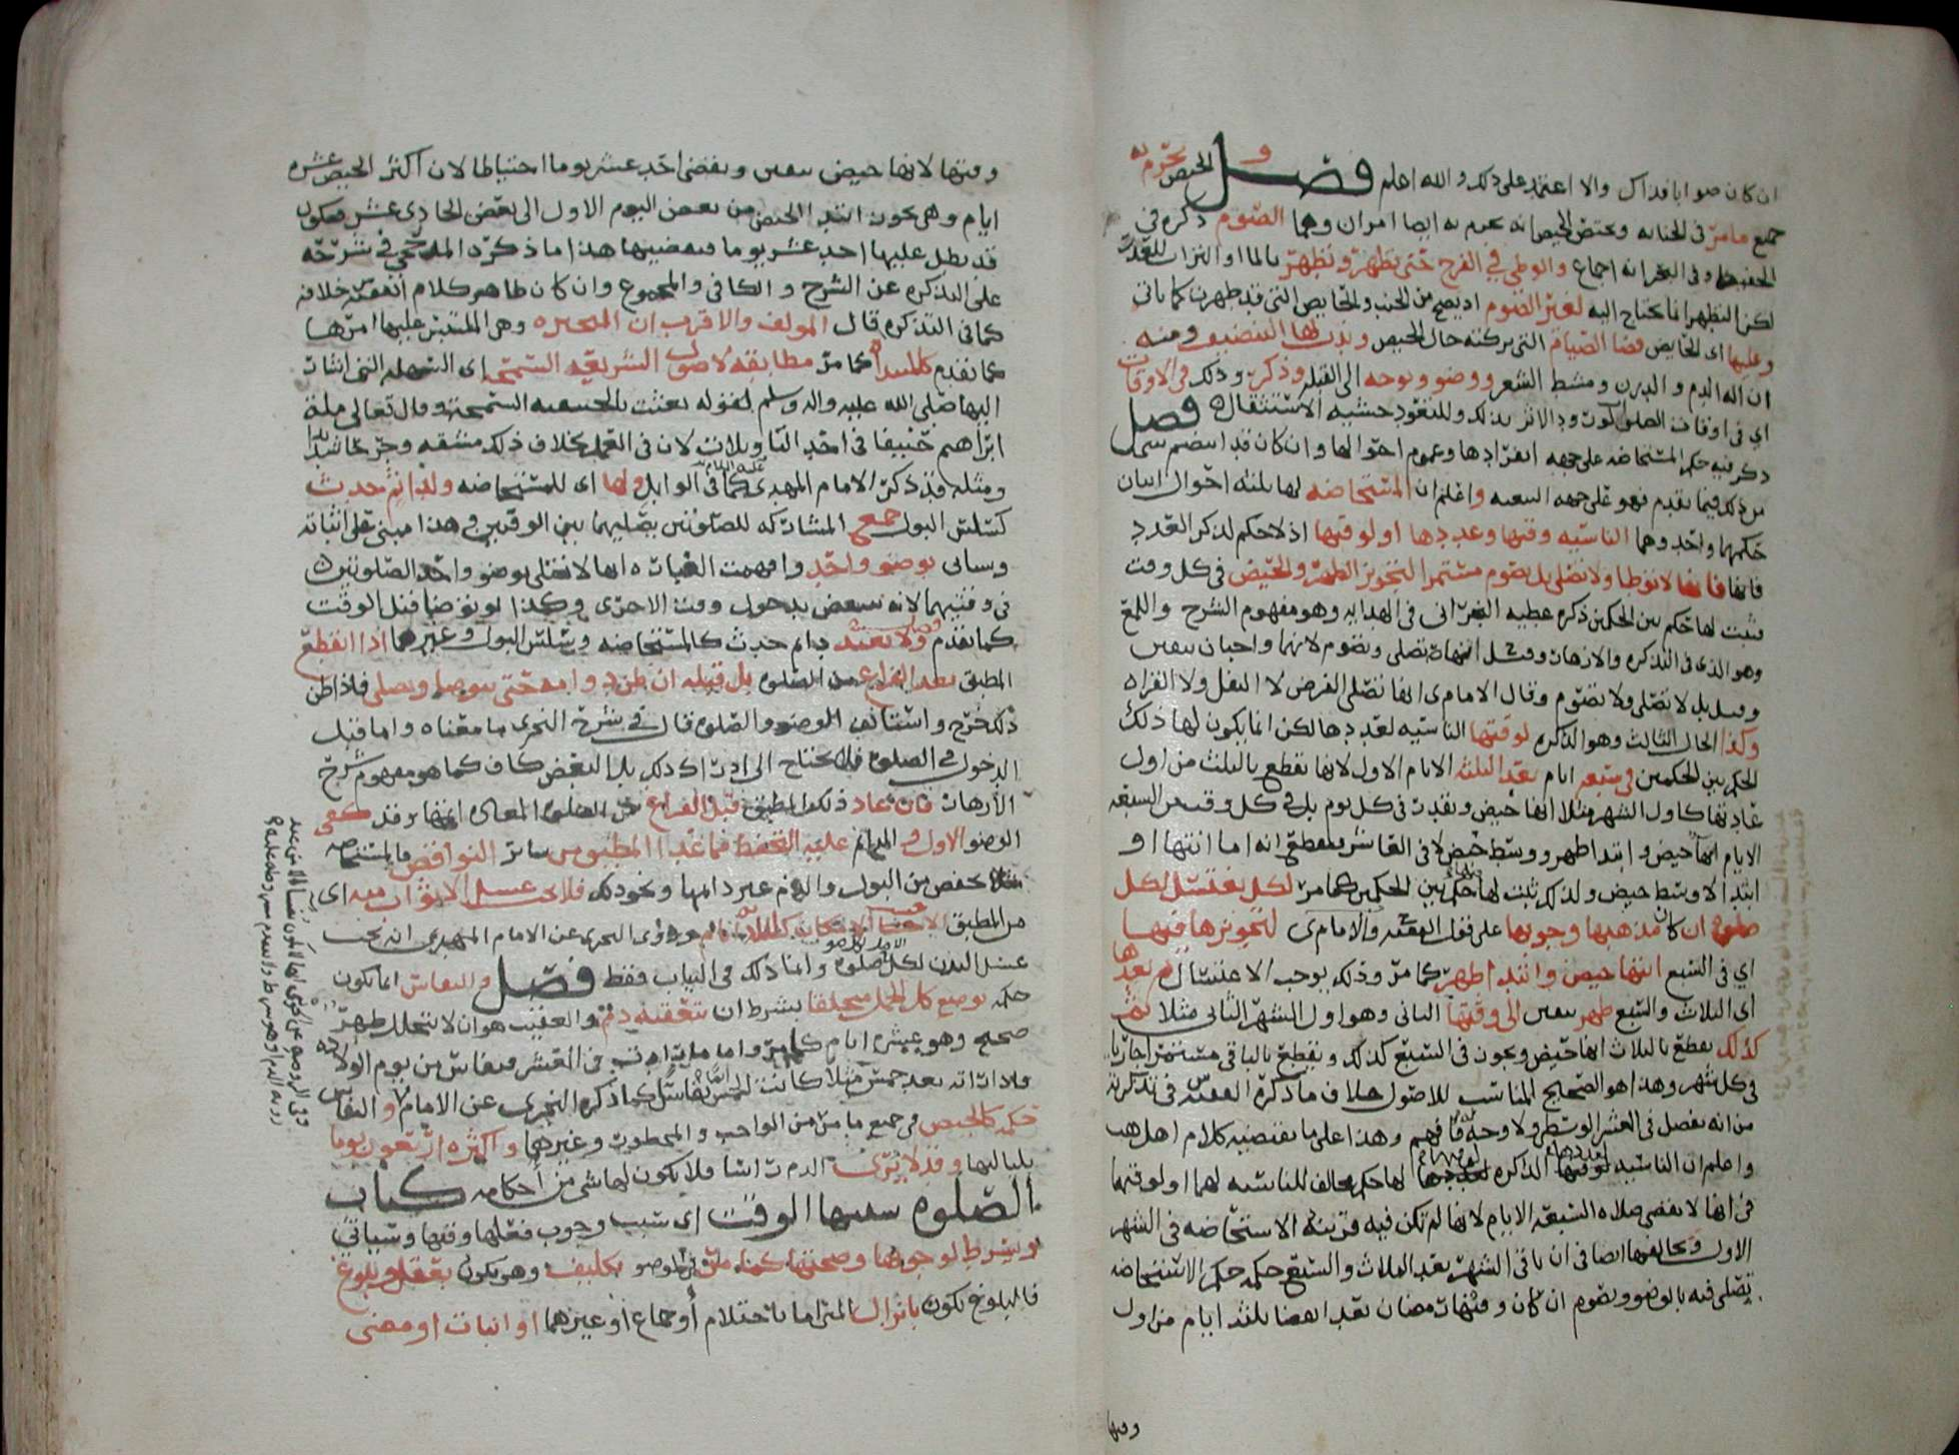 ان كان صوابا فذاك والا اعتمد على ذلك والله اعلم فصل و الحيض يحرم به
جميع ما مر في الجنابه ويختص الحيض انه يحرم به ايضا امران وهما الصوم ذكره في
وفي البحر انه اجماع والوطي في الفرج حتى تطهر وتطهر بالماء او التراب للعذر
لكن التطهر انما يحتاج اليه لغير الصوم اذ يصح من الجنب والحايض التي قد طهرت كما ياتي
وعليها اي الحايض قضا الصيام التي تركته حال الحيض وندب لها التنضيف ومنه
ازاله الدم و الدرن ومشط الشعر ووضو وتوجه الى القبله وذكر وذلك في الاوقات
اي في اوقات الصلوات فصل
ذكر فيه حكم المستحاضه على جهه انفرادها وعموم احوالها وان كان قد
من ذلك فيما تقدم فهو على جهه التبعيه واعلم ان المستحاضه لها ثلثه احوال اثنان
حكمهما واحد وهما الناسيه وقتها وعددها او لوقتها اذ لا حكم لذكر العدد
فانها لا توطا ولا تصلى بل تصوم مستمرا لتجويز الطهر والحيض في كل وقت
فثبت لها حكم بين الحكمين ذكره عطيه النجراني في الهدايه وهو مفهوم الشرح واللمع
وهو الذي في التذكره والازهار وقيل انها تصلى وتصوم لانهما واجبان بيقين
وقيل بل لا تصلى ولا تصوم وقال الامام ى انها تصلى الفرض لا النفل ولا القراه
وكذا الحال الثالث وهو الذاكره لوقتها الناسيه لعددها لكن انما يكون لها ذلك
الحكم بين الحكمين في سبعه ايام بعد الثلثه الايام الاول لانها تقطع بالثلث من اول
عادتها كاول الشهر مثلا انها حيض وتقدر في كل يوم بل في كل وقت من السبعه
الايام انها حيض وابتدا طهر ووسط حيض لا في العاشر فتقطع انه اما انتها او
ابتدا لا وسط حيض ولذلك ثبت لها حكم بين الحكمين كما مر لكن تغتسل لكل
صلوه ان كان مذهبها وجوبها على قول الفقيه والامام ى لتجويزها فيها
اي في السبع انتها حيض وابتدا طهر كما مر وذلك يوجب الاغتسال ثم بعدها
اي الثلاث والسبع طهر بيقين الى وقتها الثاني وهو اول الشهر الثاني مثلا ثم
كذلك تقطع بالثلاث انها حيض وتجوز في السبع كذلك وتقطع بالباقي مستمرا جاريا
في كل شهر وهذا هو الصحيح المناسب للاصول خلاف ما ذكره الفقيه س في تذكرته
من انه يفصل في العشر الوسطى ولا وجه له فافهم وهذا على ما يقتضيه كلام اهل المذهب
واعلم ان الناسيه لعددها الذاكره لوقتها لها حكم مخالف للناسيه لهما او لوقتها
في انها لا تقضى صلاه السبعه الايام لانها لم تكن فيه قرينه الاستحاضه في الشهر
الاول وتخالفها ايضا في ان باقي الشهر بعد الثلاث والسبع حكمه حكم الاستحاضه
تصلى فيه بالوضو وتصوم ان كان وقتها رمضان بعد ايضا ثلثه ايام من اول
وقتها
وقتها لانها حيض بيقين وتقضى احد عشر يوما احتياطا لان اكثر الحيض عشره
ايام وهي تجوز ابتدا الحيض من بعض اليوم الاول الى بعض الحادي عشر فيكون
قد بطل عليها احد عشر يوما فتقضيها هذا ما ذكره المذحجي في شرحه
على التذكره عن الشرح والكافي والمجموع وان كان ظاهر كلام الفقيه خلافه
كما في التذكره قال المولف والاقرب ان المتحيره وهي الملتبس عليها امرها
كما تقدم كالمبتداه كما مر مطابقه لاصول الشريعه السمحى اي السهله التي اشار
اليها صلى الله عليه واله وسلم بقوله بعثت بالحنيفيه السمحه وقال تعالى مله
ابراهيم حنيفا في احد التاويلات لان في العمل بخلاف ذلك مشقه وحرجا شديدا
ومثله قد ذكره الامام المهدي عليه السلام كما في الوابل ولها اي للمستحاضه ولدايم حدث
كسلس البول جمع المشاركه للصلوتين يصليهما بين الوقتين وهذا مبني على اثباته
وسياتي بوضو واحد وافهمت العباره انها لا تصلى بوضو واحد الصلوتين
في وقتيهما لانه ينتقض بدخول وقت الاخرى وكذا لو توضا قبل الوقت
كما تقدم ولا يعتد دايم حدث كالمستحاضه وسلس البول وغيرهما اذا انقطع
المطبق بعد الفراغ من الصلوه بل قبله ان ظن دوامه حتى يتوضا ويصلى فاذا ظن
ذلك خرج واستانف الوضو والصلوه قال في شرح النجري ما معناه واما قبل
الدخول في الصلوه فلا يحتاج الى ادراك ذلك بل البعض كاف كما هو مفهوم شرح
الازهار فان عاد ذلك المطبق قبل الفراغ من الصلوه المعاده فقد كفى
الوضو الاول و الدايم عليه التحفظ فيما عدا المطبق من ساير النواقض فالمستحاضه
مثلا تحفض من البول والدم غير دايمها ونحو ذلك فلا يجب غسل الاثواب منه اي
من المطبق وروى النجري عن الامام المهدي انه يجب
غسل البدن لكل صلوه وانما ذلك في الثياب فقط فصل والنفاس انما يكون
حكمه بوضع كل الحمل متخلقا بشرط ان تتعقبه دم والعقيب هو ان لا يتخلل طهر
صحيح وهو عشره ايام كما مر واما ما راته في العشر فنفاس من يوم الولاده
فلو راته بعد خمس مثلا كانت الخمس نفاسا كما ذكره النجري عن الامام و النفاس
حكمه كالحيض في جميع ما مر من الواجب والمحظورات وغيرهما واكثره اربعون يوما
بلياليها وقد لا ترى الدم راسا فلا يكون لها شي من احكامه كتاب
الصلوه سببها الوقت اي سبب وجوب فعلها وقتها وسياتي
وشرط لوجوبها وصحتها كما مر في الوضو تكليف وهو يكون بعقل وبلوغ
فالبلوغ يكون بانزال المني اما باحتلام او جماع او غيرهما او انبات او مضى